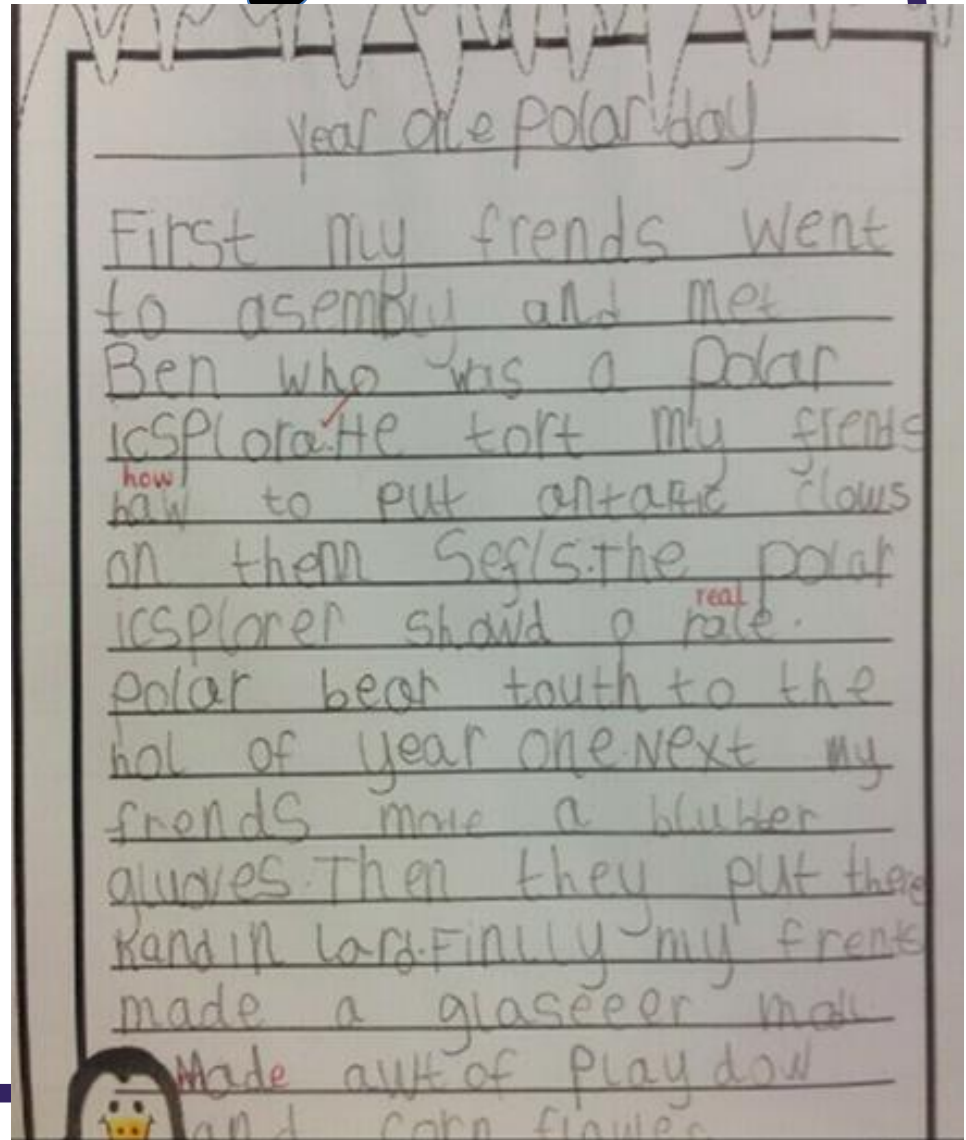 Year one polar day
First my frends went
to asembly and met
Ben who was a polar
icsplora.He tort my frends
how
haw to put antartic clows
on them sefls.The polar
real
icsplorer showd a rale.
polar bear touth to the
hol of year one.Next my
frends made a blubber
gluoves.Then they put there
hand in lard.Finlly my frents
made a glaseeer
Made awt of play dow
and corn flawer